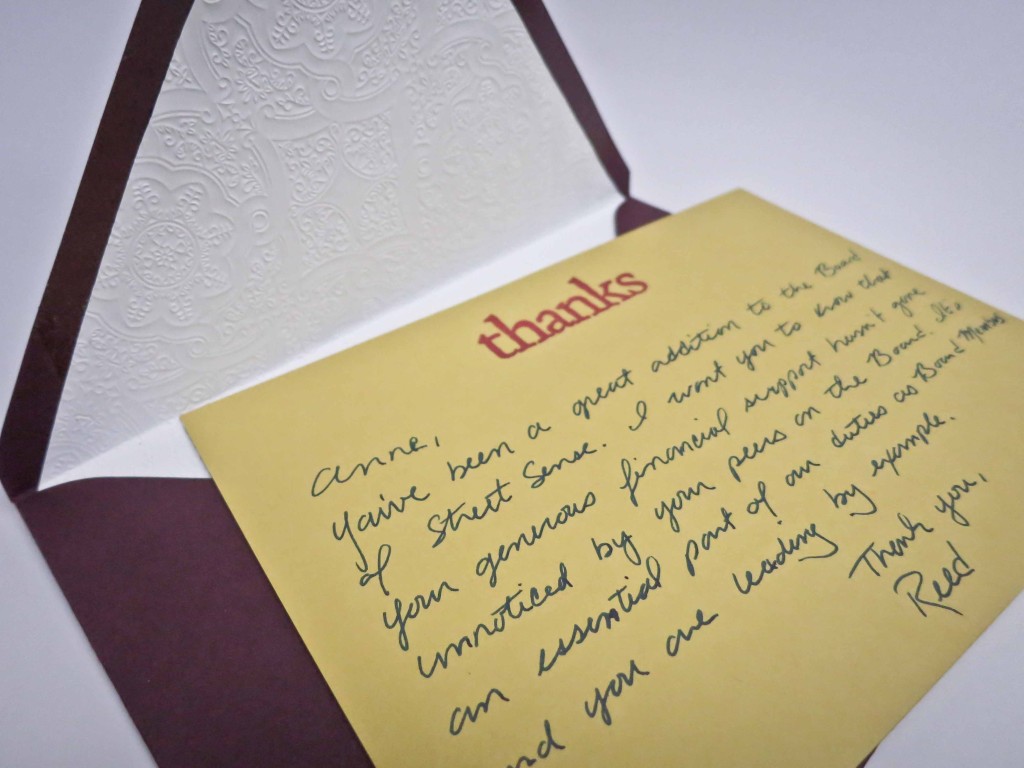 thanks
Anne,
You've been a great addition to the Board
of Street Sense. I want you to know that
your generous financial support hasn't gone
unnoticed by your peers on the Board. It's
an essential part of our duties as Board Members
and you are leading by example.
Thank you,
Reed